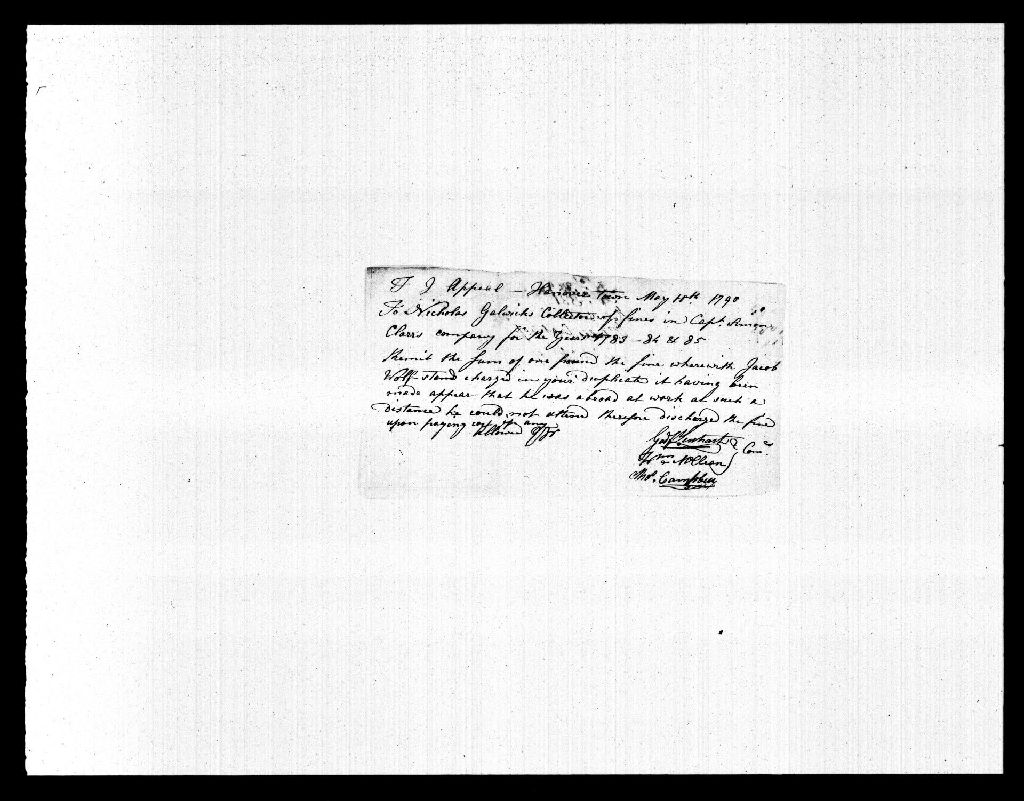 Appeal — Hanover Town May 18th 1790
To Nicholas Gelwicks Collector of fines in Capt. Simon
Clarrs company for the Years 1783 - 84 & 85
Remit the Sum of one pound the fine wherewith Jacob
Wolf stand charged in your duplicate it having been
made appear that he was abroad at work at such a
distance he could not attend therefore discharge the fine
upon paying cost if any
allowed
Lenhart Com.rs
Wm McClean
Thos. Campbell